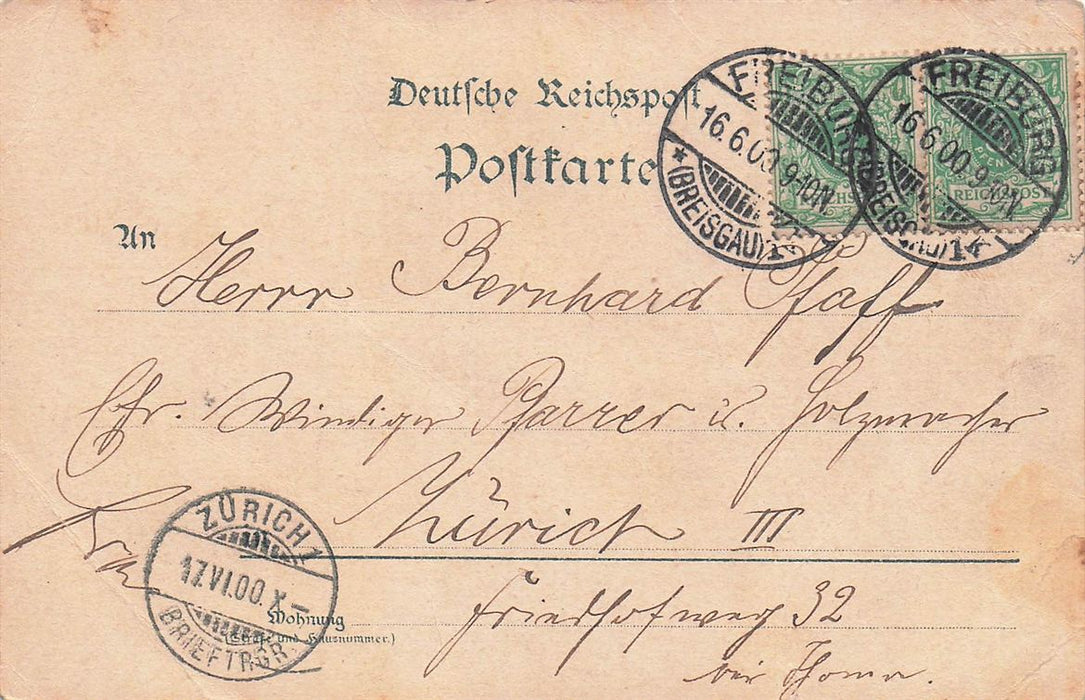 Deutsche Reichspost
Postkarte
FREIBURG
16.6.00.9-10N
* (BREISGAU) 1*
FREIBURG
16.6.00.9-10N
(BREISGAU) 1*
REICHSPOST
REICHSPOST
An
Herrn Bernhard Pfaff
Pfarrer u. Holzmacher
Zürich III
ZÜRICH 1
17.VI.00.X-
BRIEFTRGR.
Wohnung
(Straße und Hausnummer.)
Friedhofweg 32
bei Thoma.